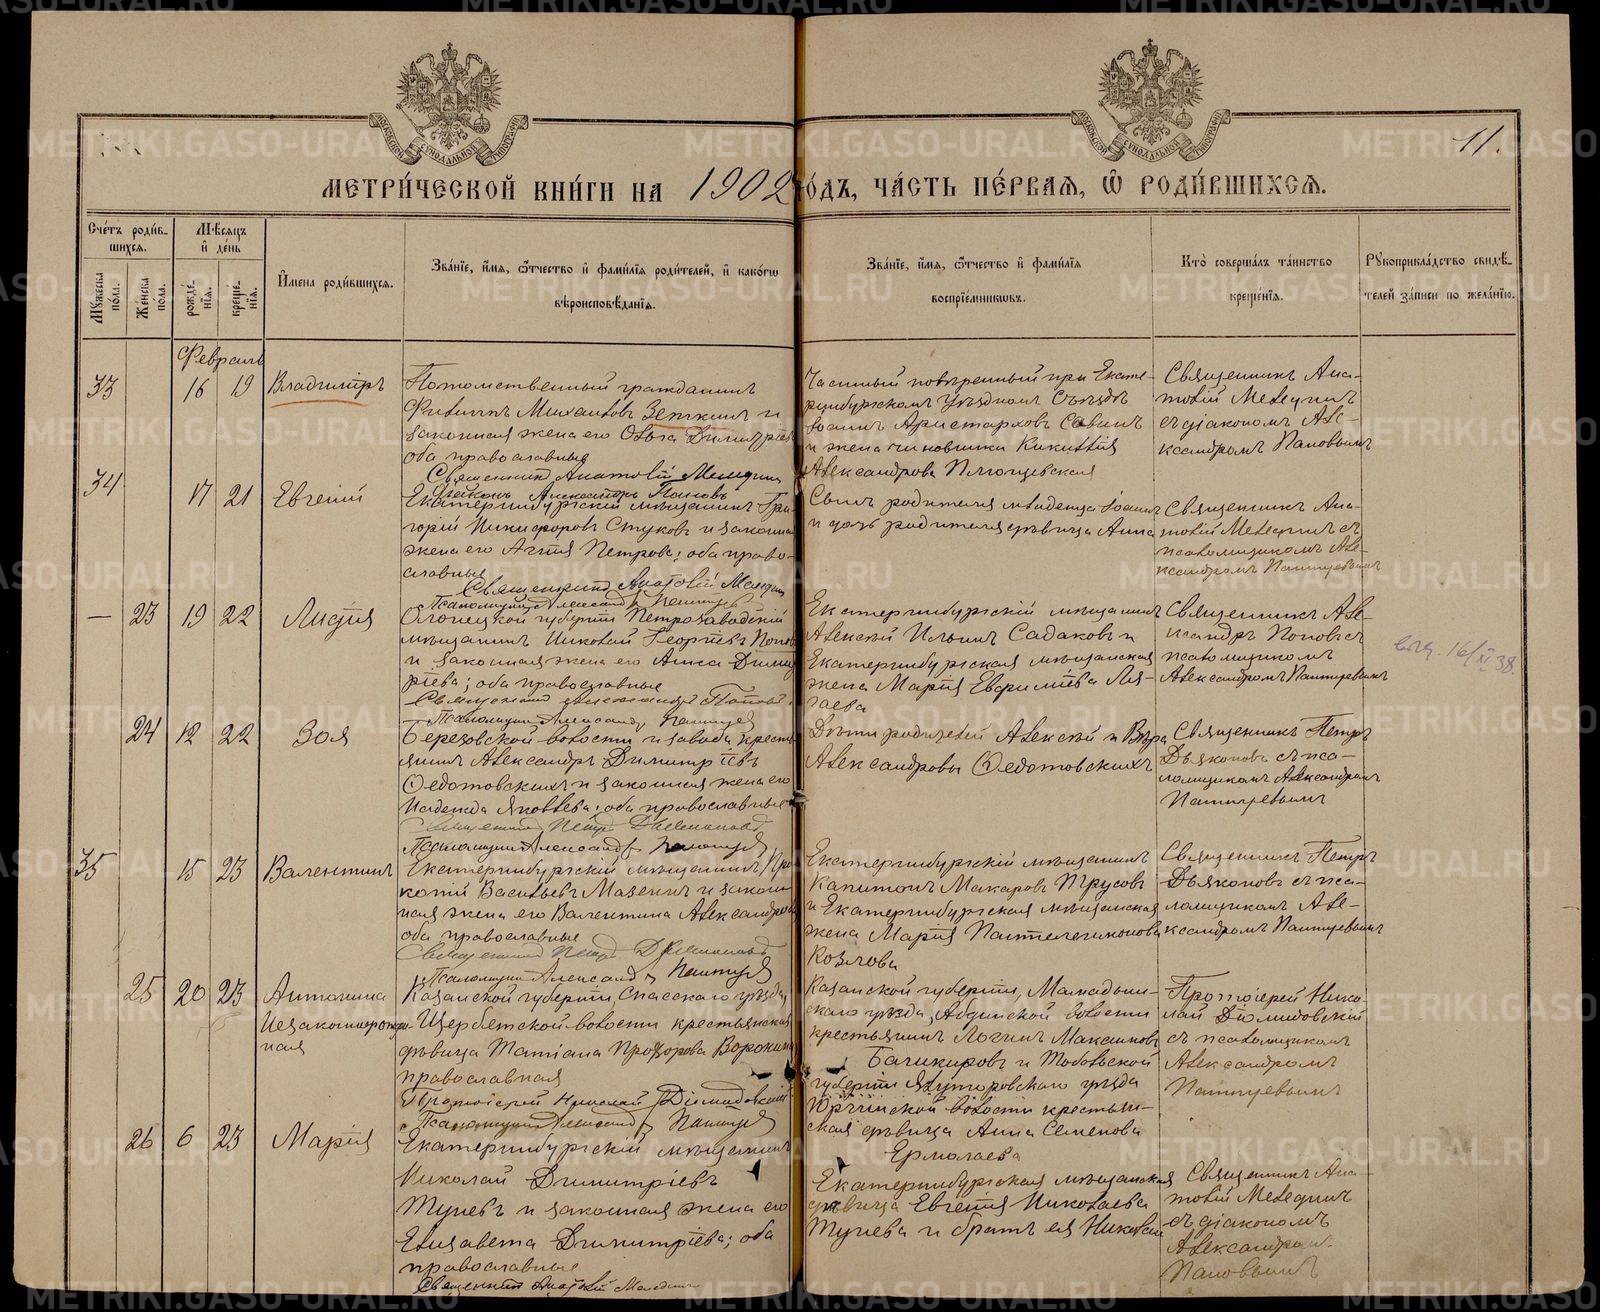 11.
МЕТРИ́ЧЕСКОЙ КНИ́ГИ НА 1902 ГО́ДЪ, ЧА́СТЬ ПЕ́РВАЯ, Ѽ РОДИ́ВШИХСЯ.
Сче́тъ роди́в-
шихся.
Мѣ́сяцъ
и де́нь
Мꙋ́жеска
по́ла.
Же́нска
по́ла.
рожде́-
нія.
креще́-
нія.
И́мена роди́вшихся.
Зва́ніе, и́мя, ѻ́тчество и фами́лія роди́телей, и како́гѡ
вѣроисповѣ́данія.
Зва́ніе, и́мя, ѻ́тчество и фами́лія
воспріе́мниковъ.
Кто̀ соверша́лъ та́инство
креще́нія.
Рꙋкоприкла́дство свидѣ́-
телей за́писи по жела́нію.
Февраль
33 16 19 Владиміръ
Потомственный гражданинъ
Филиппъ Михаиловъ Зеткинъ и
законная жена его Ольга Димитріева
оба православные
Священник Анатолій
Диакон Александръ Поповъ
Частный повѣренный при Екате-
ринбургскомъ Уѣздномъ Съѣздѣ
Іоаннъ Аристарховъ Савинъ
и жена чиновника Кикилія
Александрова
Священникъ Ана-
толій
съ діакономъ Але-
ксандромъ Поповымъ
34 17 21 Евгеній
Екатеринбургскій мѣщанинъ Гри-
горій Никифоровъ Стуковъ и законная
жена его Агнія Петрова; оба право-
славные
Священник Анатолій
Псаломщик Александр
Сынъ родителя младенца Іоаннъ
и дочь родителя дѣвица Анна
Священникъ Ана-
толій съ
псаломщикомъ Але-
ксандромъ
— 23 19 22 Лидія
Олонецкой губерніи Петрозаводскій
мѣщанинъ Николай Георгіевъ Попов
и законная жена его Анна Димит-
ріева; оба православные
Священник Александр Поповъ
Псаломщик Александр
Екатеринбургскій мѣщанинъ
Алексій Ильинъ Садаковъ и
Екатеринбургская мѣщанская
жена Марія Евфиміева Ля-
гаева
Священникъ Але-
ксандръ Поповъ съ
псаломщикомъ
Александромъ
16/XI 38
24 12 22 Зоя
Березовской волости и завода кресть-
янинъ Александръ Димитріевъ
Ѳедотовскихъ и законная жена его
Надежда Яковлева; оба православные
Священник Петр Дьяконов
Псаломщик Александр
Дѣти родителей Алексій и Вѣра
Александровы Ѳедотовскихъ
Священникъ Петръ
Дьяконовъ съ пса-
ломщикомъ Александромъ
35 15 23 Валентинъ
Екатеринбургскій мѣщанинъ Про-
копій Васильевъ Мазеинъ и закон-
ная жена его Валентина Александрова
оба православные
Священник Петр Дьяконов
Псаломщик Александр
Екатеринбургскій мѣщанинъ
Капитонъ Макаровъ Трусовъ
и Екатеринбургская мѣщанская
жена Марія Пантелеимонова
Козлова
Священникъ Петръ
Дьяконовъ съ пса-
ломщикомъ Але-
ксандромъ
25 20 23 Антонина
Незаконнорожден-
ная
Казанской губерніи, Спасскаго уѣзда,
Щербетской волости крестьянская
дѣвица Татіана Прохорова Воронина
православная
Протоіерей Николай Діомидовскій
Псаломщик Александр
Казанской губерніи, Мамадыш-
скаго уѣзда, Абдинской волости
крестьянинъ Логинъ Максимовъ
Башкировъ и Тобольской
губерніи Ялуторовскаго уѣзда
Юргинской волости крестьян-
ская дѣвица Анна Семенова
Ермолаева
Протоіерей Нико-
лай Діомидовскій
съ псаломщикомъ
Александромъ
26 6 23 Марія
Екатеринбургскій мѣщанинъ
Николай Димитріевъ
Тупевъ и законная жена его
Елизавета Димитріева; оба
православные
Священник Анатолій
Екатеринбургская мѣщанская
дѣвица Евгенія Николаева
Тупева и братъ ея Николай
Священникъ Ана-
толій
съ діакономъ
Александромъ
Поповымъ
METRIKI.GASO-URAL.RU